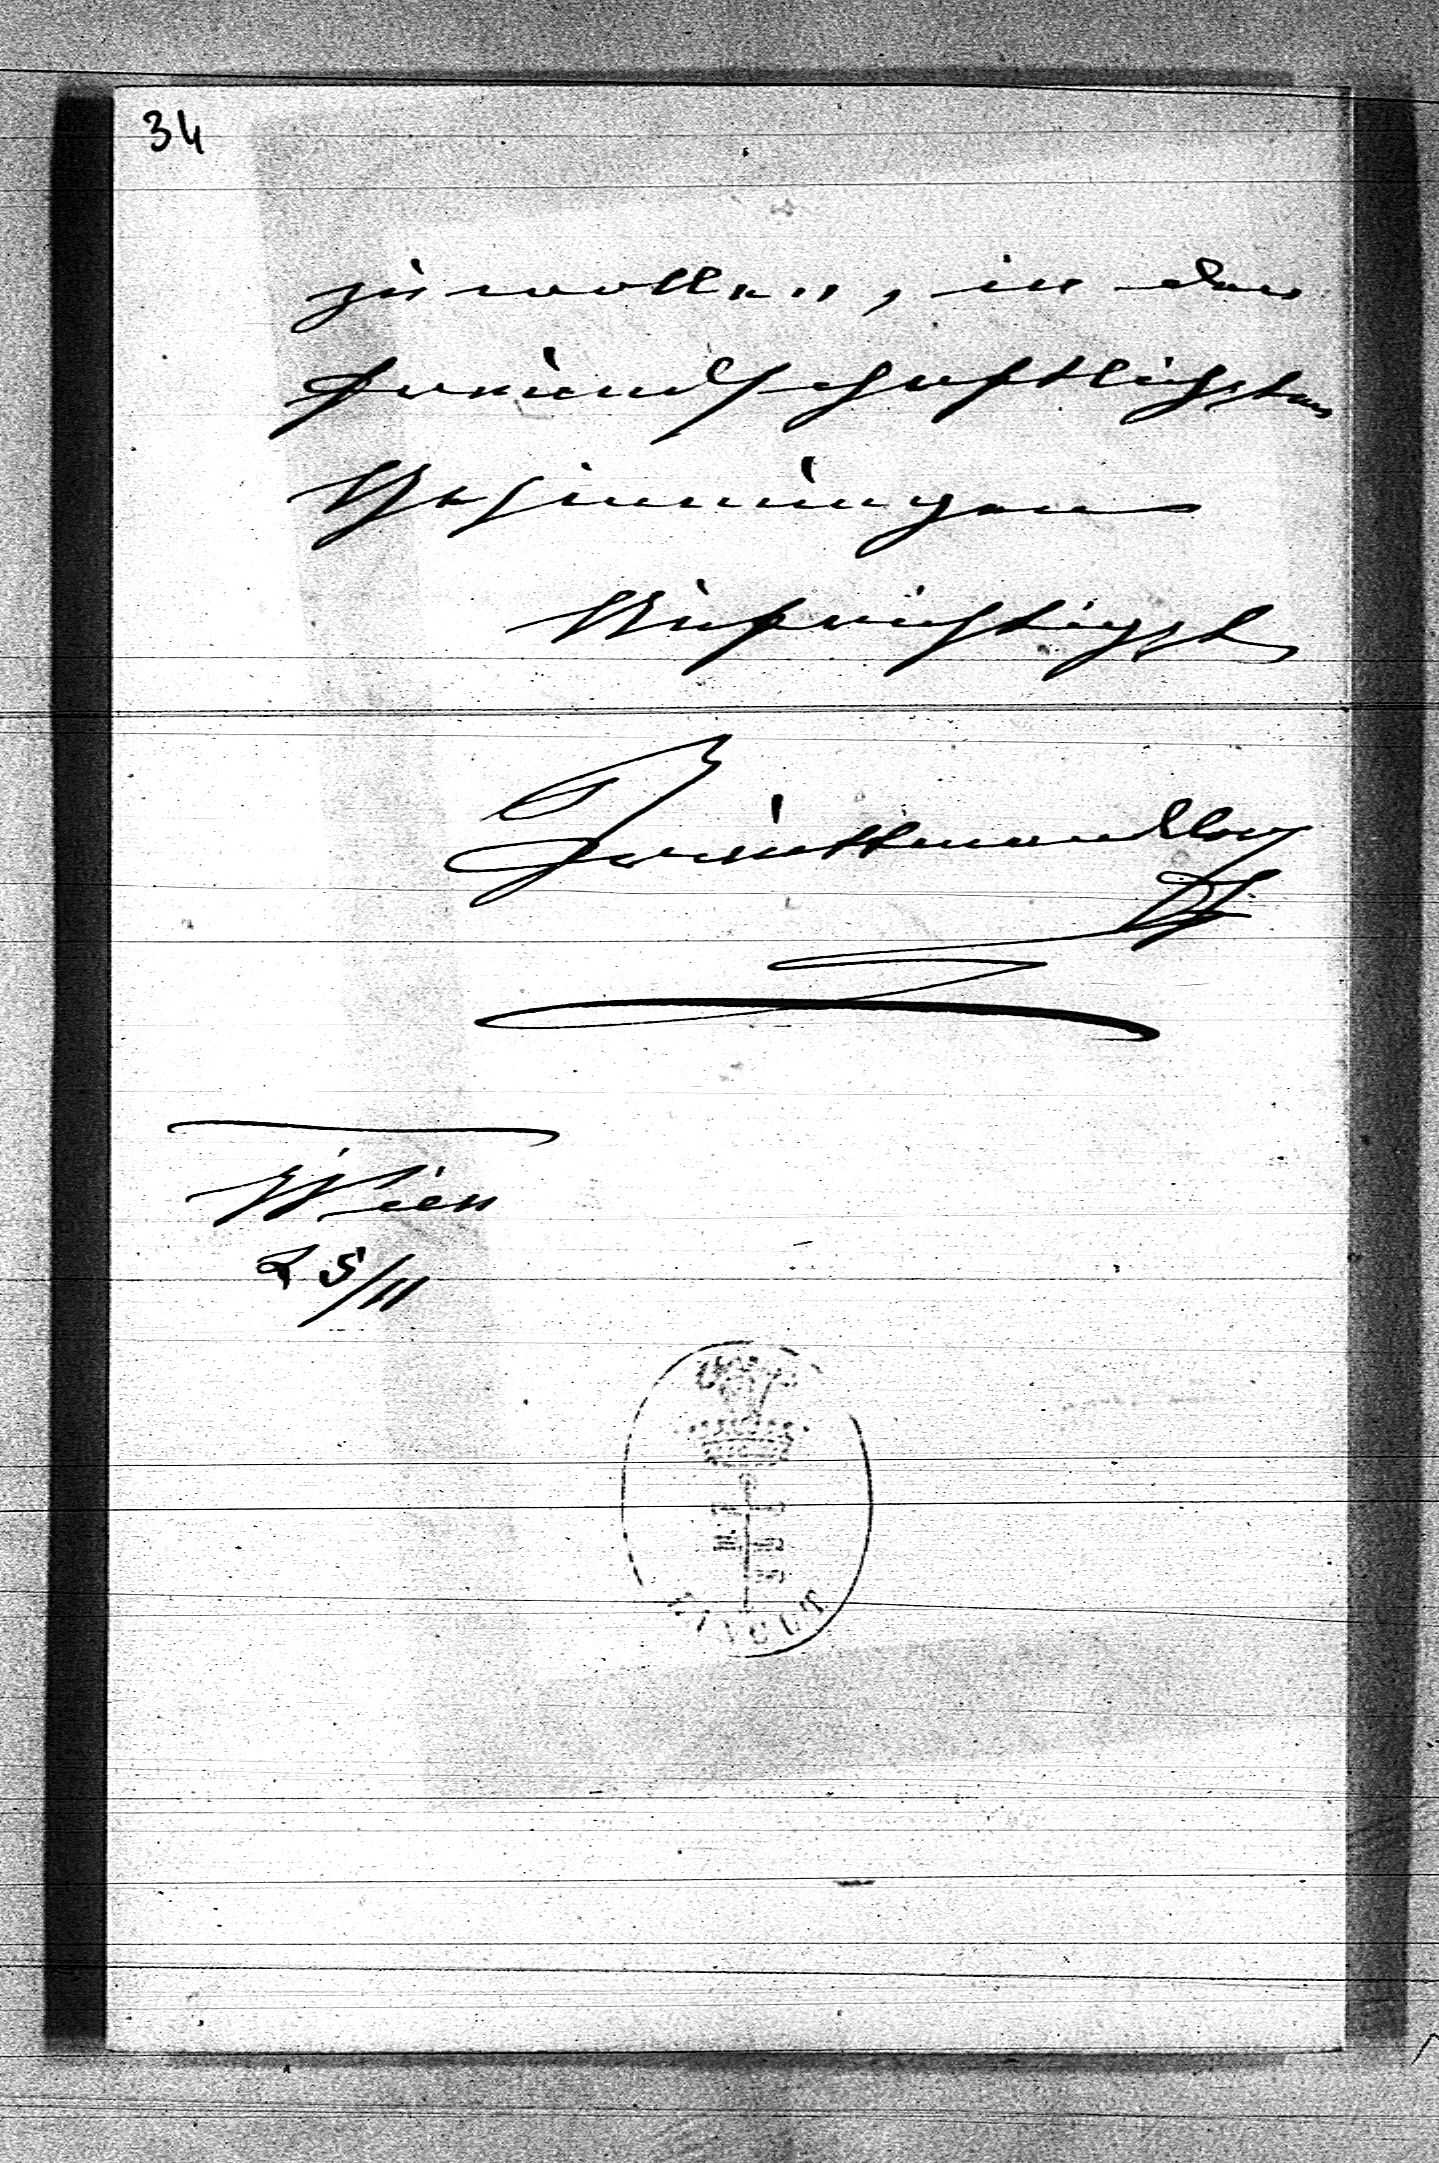 34
zu wollen, in den
freundschaftlichsten
Gesinnungen
Aufrichtigst
Wien
25/11